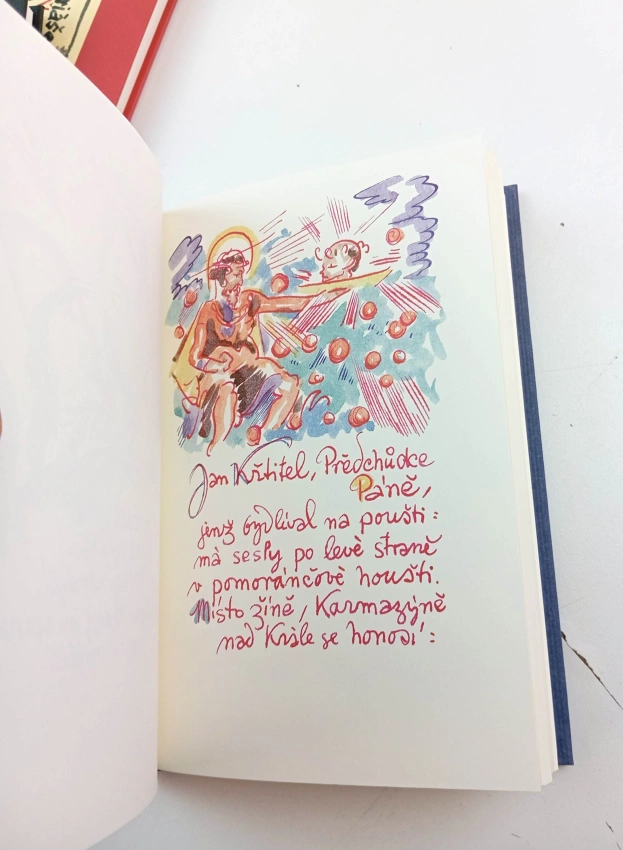 Jan Křtitel, Předchůdce
Páně,
jenž býdlíval na poušti:
má sesly po levé straně
v pomorančové houšti.
Místo žíně, Karmazýně
nad Krále se honosí: